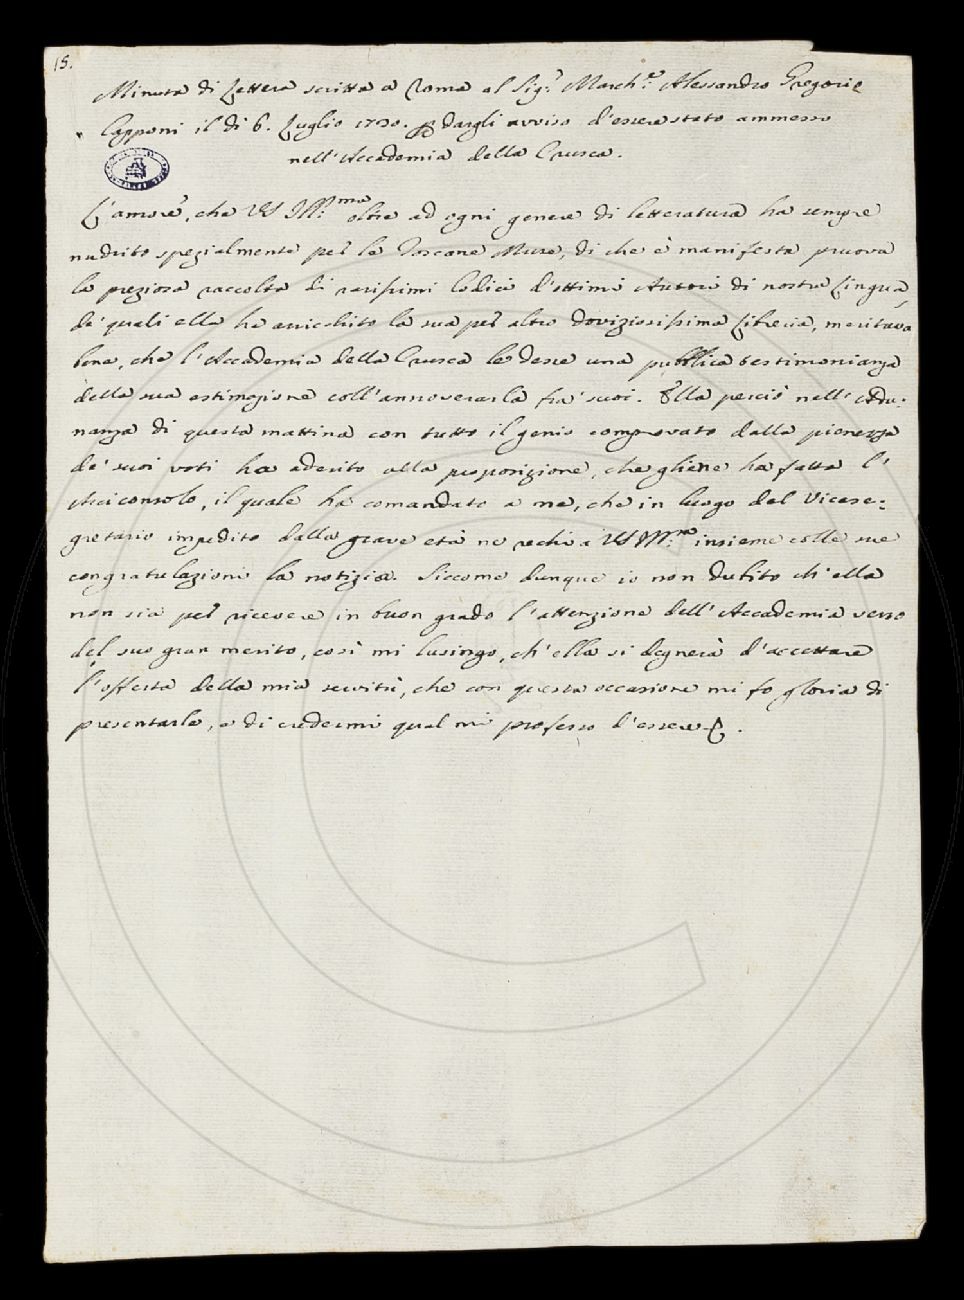 15.
Minuta di Lettera scritta a Roma al Sig.r March.e Alessandro Gregorio
Capponi il dì 6. Luglio 1730. p dargli avviso d'essere stato ammesso
nell'Accademia della Crusca.
L'amore, che VS Ill.ma oltre ad ogni genere di letteratura ha sempre
nudrito spezialmente per le Toscane Muse, di che è manifesta pruova
la preziosa raccolta di rarissimi Codici d'ottimi Autori di nostra Lingua,
de' quali ella ha arricchito la sua per altro doviziosissima Libreria, meritava
bene, che l'Accademia della Crusca le desse una pubblica testimonianza
della sua estimazione coll'annoverarla fra' suoi. Ella perciò nell'Adu-
nanza di questa mattina con tutto il genio comprovato dalla pienezza
de' suoi voti ha aderito alla proposizione, che gliene ha fatta l'
Arciconsolo, il quale ha comandato a me, che in luogo del Vicese-
gretario impedito dalla grave età ne rechi a VS Ill.ma insieme colle sue
congratulazioni la notizia. Siccome dunque io non dubito ch'ella
non sia per ricevere in buon grado l'attenzione dell'Accademia verso
del suo gran merito, così mi lusingo, ch'ella si degnerà d'accettare
l'offerta della mia servitù, che con questa occasione mi fo gloria di
presentarle, e di credermi qual mi professo d'essere